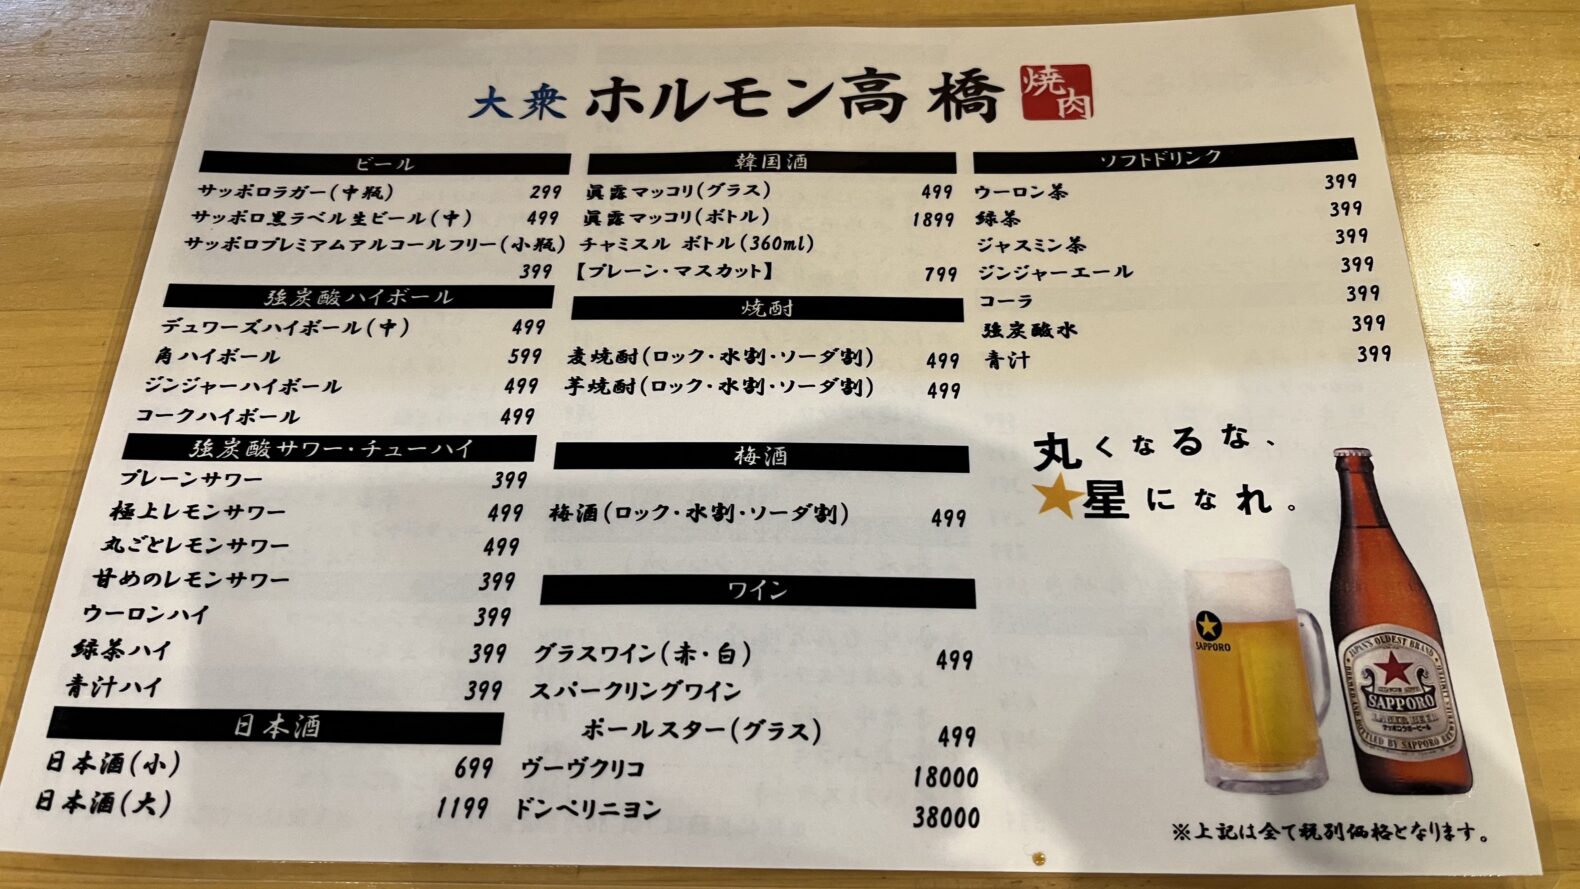 大衆 ホルモン高橋 焼肉
ビール
サッポロラガー(中瓶) 299
サッポロ黒ラベル生ビール(中) 499
サッポロプレミアムアルコールフリー(小瓶)
399
強炭酸ハイボール
デュワーズハイボール(中) 499
角ハイボール 599
ジンジャーハイボール 499
コークハイボール 499
強炭酸サワー・チューハイ
プレーンサワー 399
極上レモンサワー 499
丸ごとレモンサワー 499
甘めのレモンサワー 399
ウーロンハイ 399
緑茶ハイ 399
青汁ハイ 399
日本酒
日本酒(小) 699
日本酒(大) 1199
韓国酒
眞露マッコリ(グラス) 499
眞露マッコリ(ボトル) 1899
チャミスル ボトル(360ml)
【プレーン・マスカット】 799
焼酎
麦焼酎(ロック・水割・ソーダ割) 499
芋焼酎(ロック・水割・ソーダ割) 499
梅酒
梅酒(ロック・水割・ソーダ割) 499
ワイン
グラスワイン(赤・白) 499
スパークリングワイン
ポールスター(グラス) 499
ヴーヴクリコ 18000
ドンペリニヨン 38000
ソフトドリンク
ウーロン茶 399
緑茶 399
ジャスミン茶 399
ジンジャーエール 399
コーラ 399
強炭酸水 399
青汁 399
丸くなるな、
★星になれ。
SAPPORO
JAPAN'S OLDEST BRAND
SAPPORO
LAGER BEER
サッポロラガービール
※上記は全て税別価格となります。